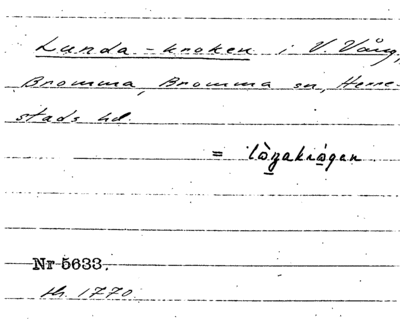 Lunda-kroken i V. Vång,
Bromma, Bromma sn, Herre-
stads hd.
= lòṉakrògen
Nr 5633.
th. 1770.